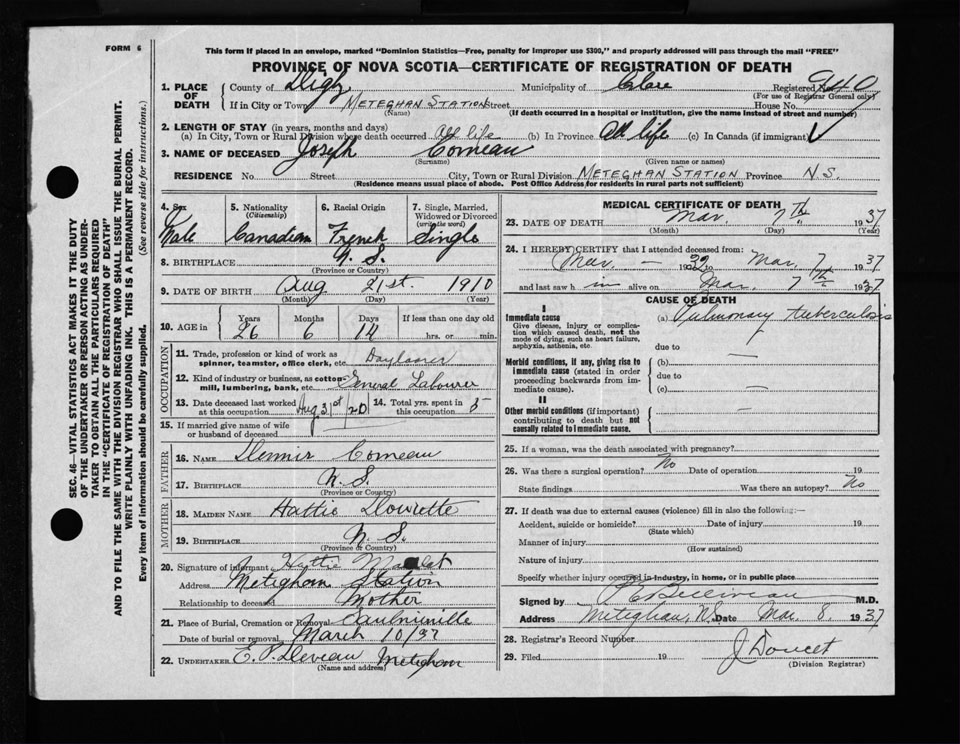 FORM 6
This form if placed in an envelope, marked "Dominion Statistics—Free, penalty for improper use $300," and properly addressed will pass through the mail "FREE"
PROVINCE OF NOVA SCOTIA—CERTIFICATE OF REGISTRATION OF DEATH
SEC. 46—VITAL STATISTICS ACT MAKES IT THE DUTY
OF THE UNDERTAKER OR PERSON ACTING AS UNDER-
TAKER TO OBTAIN ALL THE PARTICULARS REQUIRED
IN THE "CERTIFICATE OF REGISTRATION OF DEATH"
AND TO FILE THE SAME WITH THE DIVISION REGISTRAR WHO SHALL ISSUE THE BURIAL PERMIT.
WRITE PLAINLY WITH UNFADING INK. THIS IS A PERMANENT RECORD.
Every item of information should be carefully supplied. (See reverse side for instructions.)
1. PLACE OF DEATH County of Digby Municipality of Clare Registered No. 940
(For use of Registrar General only)
If in City or Town METEGHAN STATION Street House No.
(Name) (If death occurred in a hospital or institution, give the name instead of street and number)
2. LENGTH OF STAY (in years, months and days)
(a) In City, Town or Rural Division where death occurred All life (b) In Province All life (c) In Canada (if immigrant)
3. NAME OF DECEASED Joseph Comeau
(Surname) (Given name or names)
RESIDENCE No. Street City, Town or Rural Division METEGHAN STATION Province N.S.
(Residence means usual place of abode. Post Office Address for residents in rural parts not sufficient)
4. Sex Male
5. Nationality (Citizenship) Canadian
6. Racial Origin French
7. Single, Married, Widowed or Divorced (write the word) Single
8. BIRTHPLACE N.S.
(Province or Country)
9. DATE OF BIRTH Aug 21st. 1910
(Month) (Day) (Year)
10. AGE in Years 26 Months 6 Days 14 If less than one day old hrs. or min.
OCCUPATION
11. Trade, profession or kind of work as spinner, teamster, office clerk, etc.
12. Kind of industry or business, as cotton mill, lumbering, bank, etc. General Labourer
13. Date deceased last worked at this occupation Aug 31st
14. Total yrs. spent in this occupation 5
15. If married give name of wife or husband of deceased
FATHER
16. NAME Dennis Comeau
17. BIRTHPLACE N.S.
(Province or Country)
MOTHER
18. MAIDEN NAME Hattie
19. BIRTHPLACE N.S.
(Province or Country)
20. Signature of informant Hattie
Address Meteghan Station
Relationship to deceased Mother
21. Place of Burial, Cremation or Removal Saulnierville
Date of burial or removal March 10/37
22. UNDERTAKER E. P. Deveau Meteghan
(Name and address)
MEDICAL CERTIFICATE OF DEATH
23. DATE OF DEATH Mar. 7th 1937
(Month) (Day) (Year)
24. I HEREBY CERTIFY that I attended deceased from:
Mar. — 19 to Mar. 7 1937
and last saw h im alive on Mar. 7th 1937
CAUSE OF DEATH
I
Immediate cause
Give disease, injury or complication which caused death, not the mode of dying, such as heart failure, asphyxia, asthenia, etc.
(a) Pulmonary tuberculosis
due to
Morbid conditions, if any, giving rise to immediate cause (stated in order proceeding backwards from immediate cause).
(b) —
due to
(c) —
II
Other morbid conditions (if important) contributing to death but not causally related to immediate cause. —
25. If a woman, was the death associated with pregnancy?
26. Was there a surgical operation? No Date of operation 19
State findings Was there an autopsy? No
27. If death was due to external causes (violence) fill in also the following:—
Accident, suicide or homicide? Date of injury 19
(State which)
Manner of injury
(How sustained)
Nature of injury
Specify whether injury occurred in industry, in home, or in public place
Signed by P E Belliveau M.D.
Address Meteghan, N.S. Date Mar. 8. 1937
28. Registrar's Record Number
29. Filed 19 J Doucet
(Division Registrar)